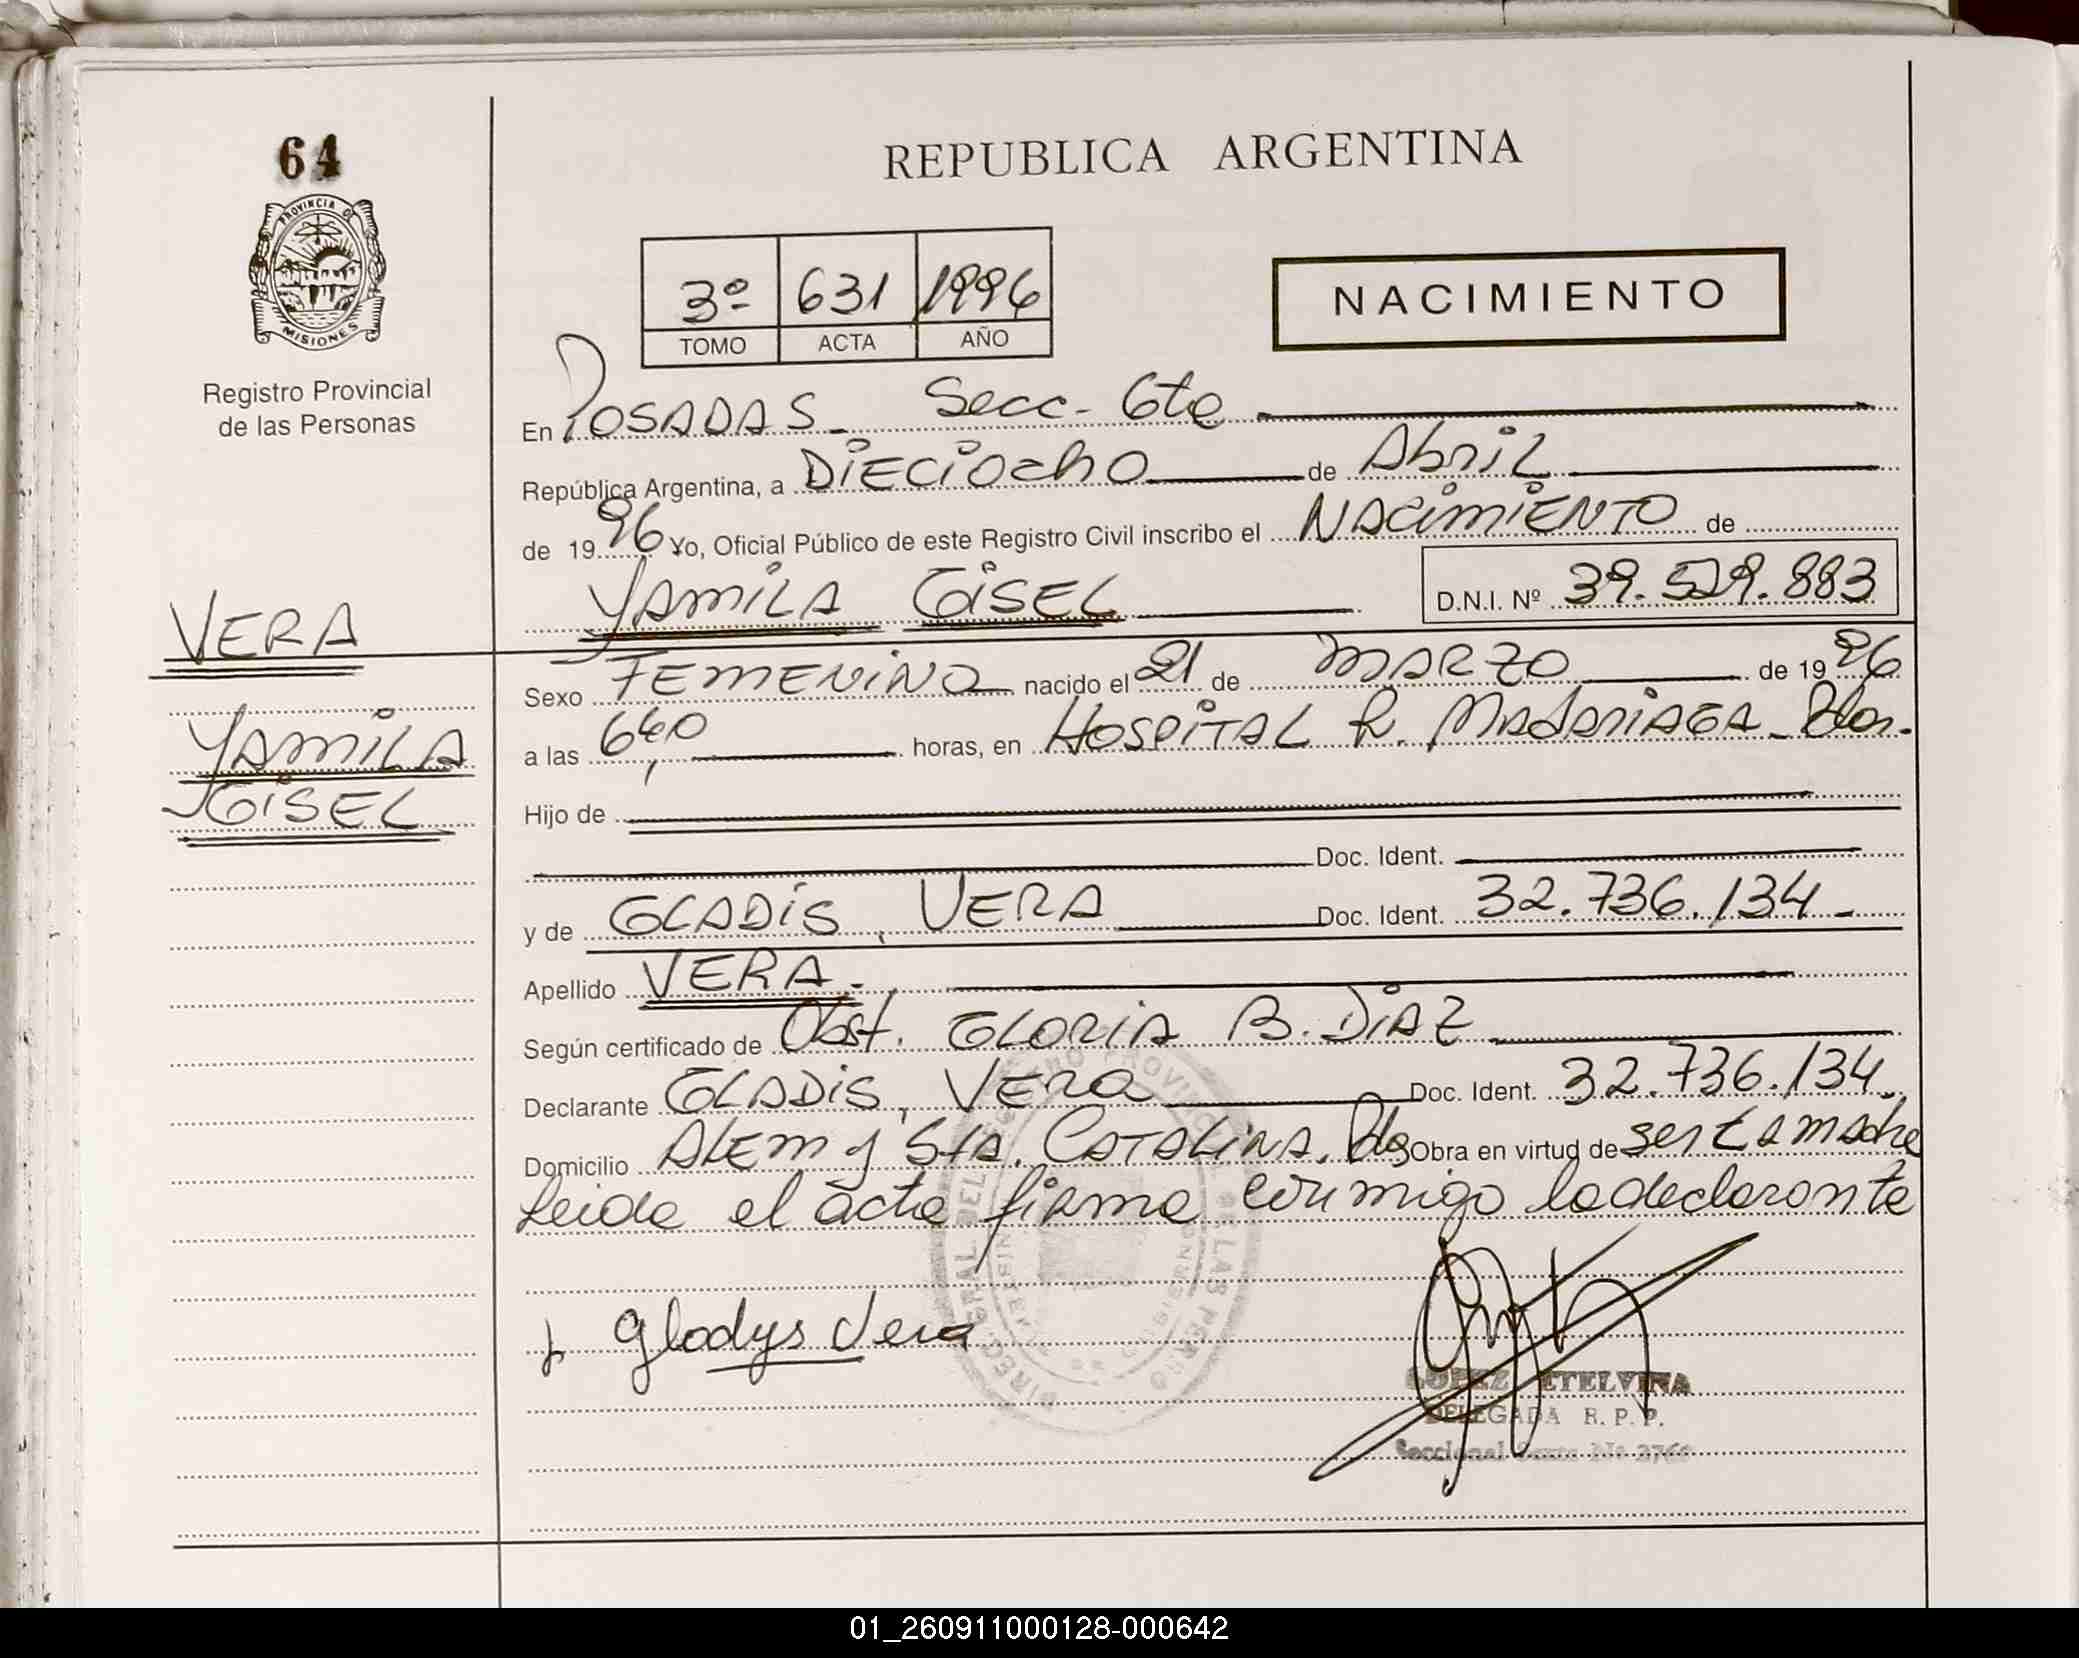 64
PROVINCIA DE
MISIONES
Registro Provincial
de las Personas
REPUBLICA ARGENTINA
3º 631 1996
TOMO ACTA AÑO
NACIMIENTO
En POSADAS - Secc. 6ta
República Argentina, a DIECIOCHO de Abril
de 1996 Yo, Oficial Público de este Registro Civil inscribo el NACIMIENTO de
YAMILA GISEL D.N.I. Nº 39.529.883
VERA
YAMILA
GISEL
Sexo FEMENINO nacido el 21 de MARZO de 1996
a las 6,40 horas, en HOSPITAL R. MADARIAGA - Pdas.
Hijo de
Doc. Ident.
y de GLADIS, VERA Doc. Ident. 32.736.134 -
Apellido VERA.-
Según certificado de Obst. GLORIA B. DIAZ
Declarante GLADIS, VERA Doc. Ident. 32.736.134
Domicilio ALEM y Sta. CATALINA. Pds Obra en virtud de ser la madre
Leida el acta firma conmigo la declarante
Gladys Vera
LOPEZ ETELVINA
DELEGADA R. P. P.
Seccional Sexta Nº
01_260911000128-000642